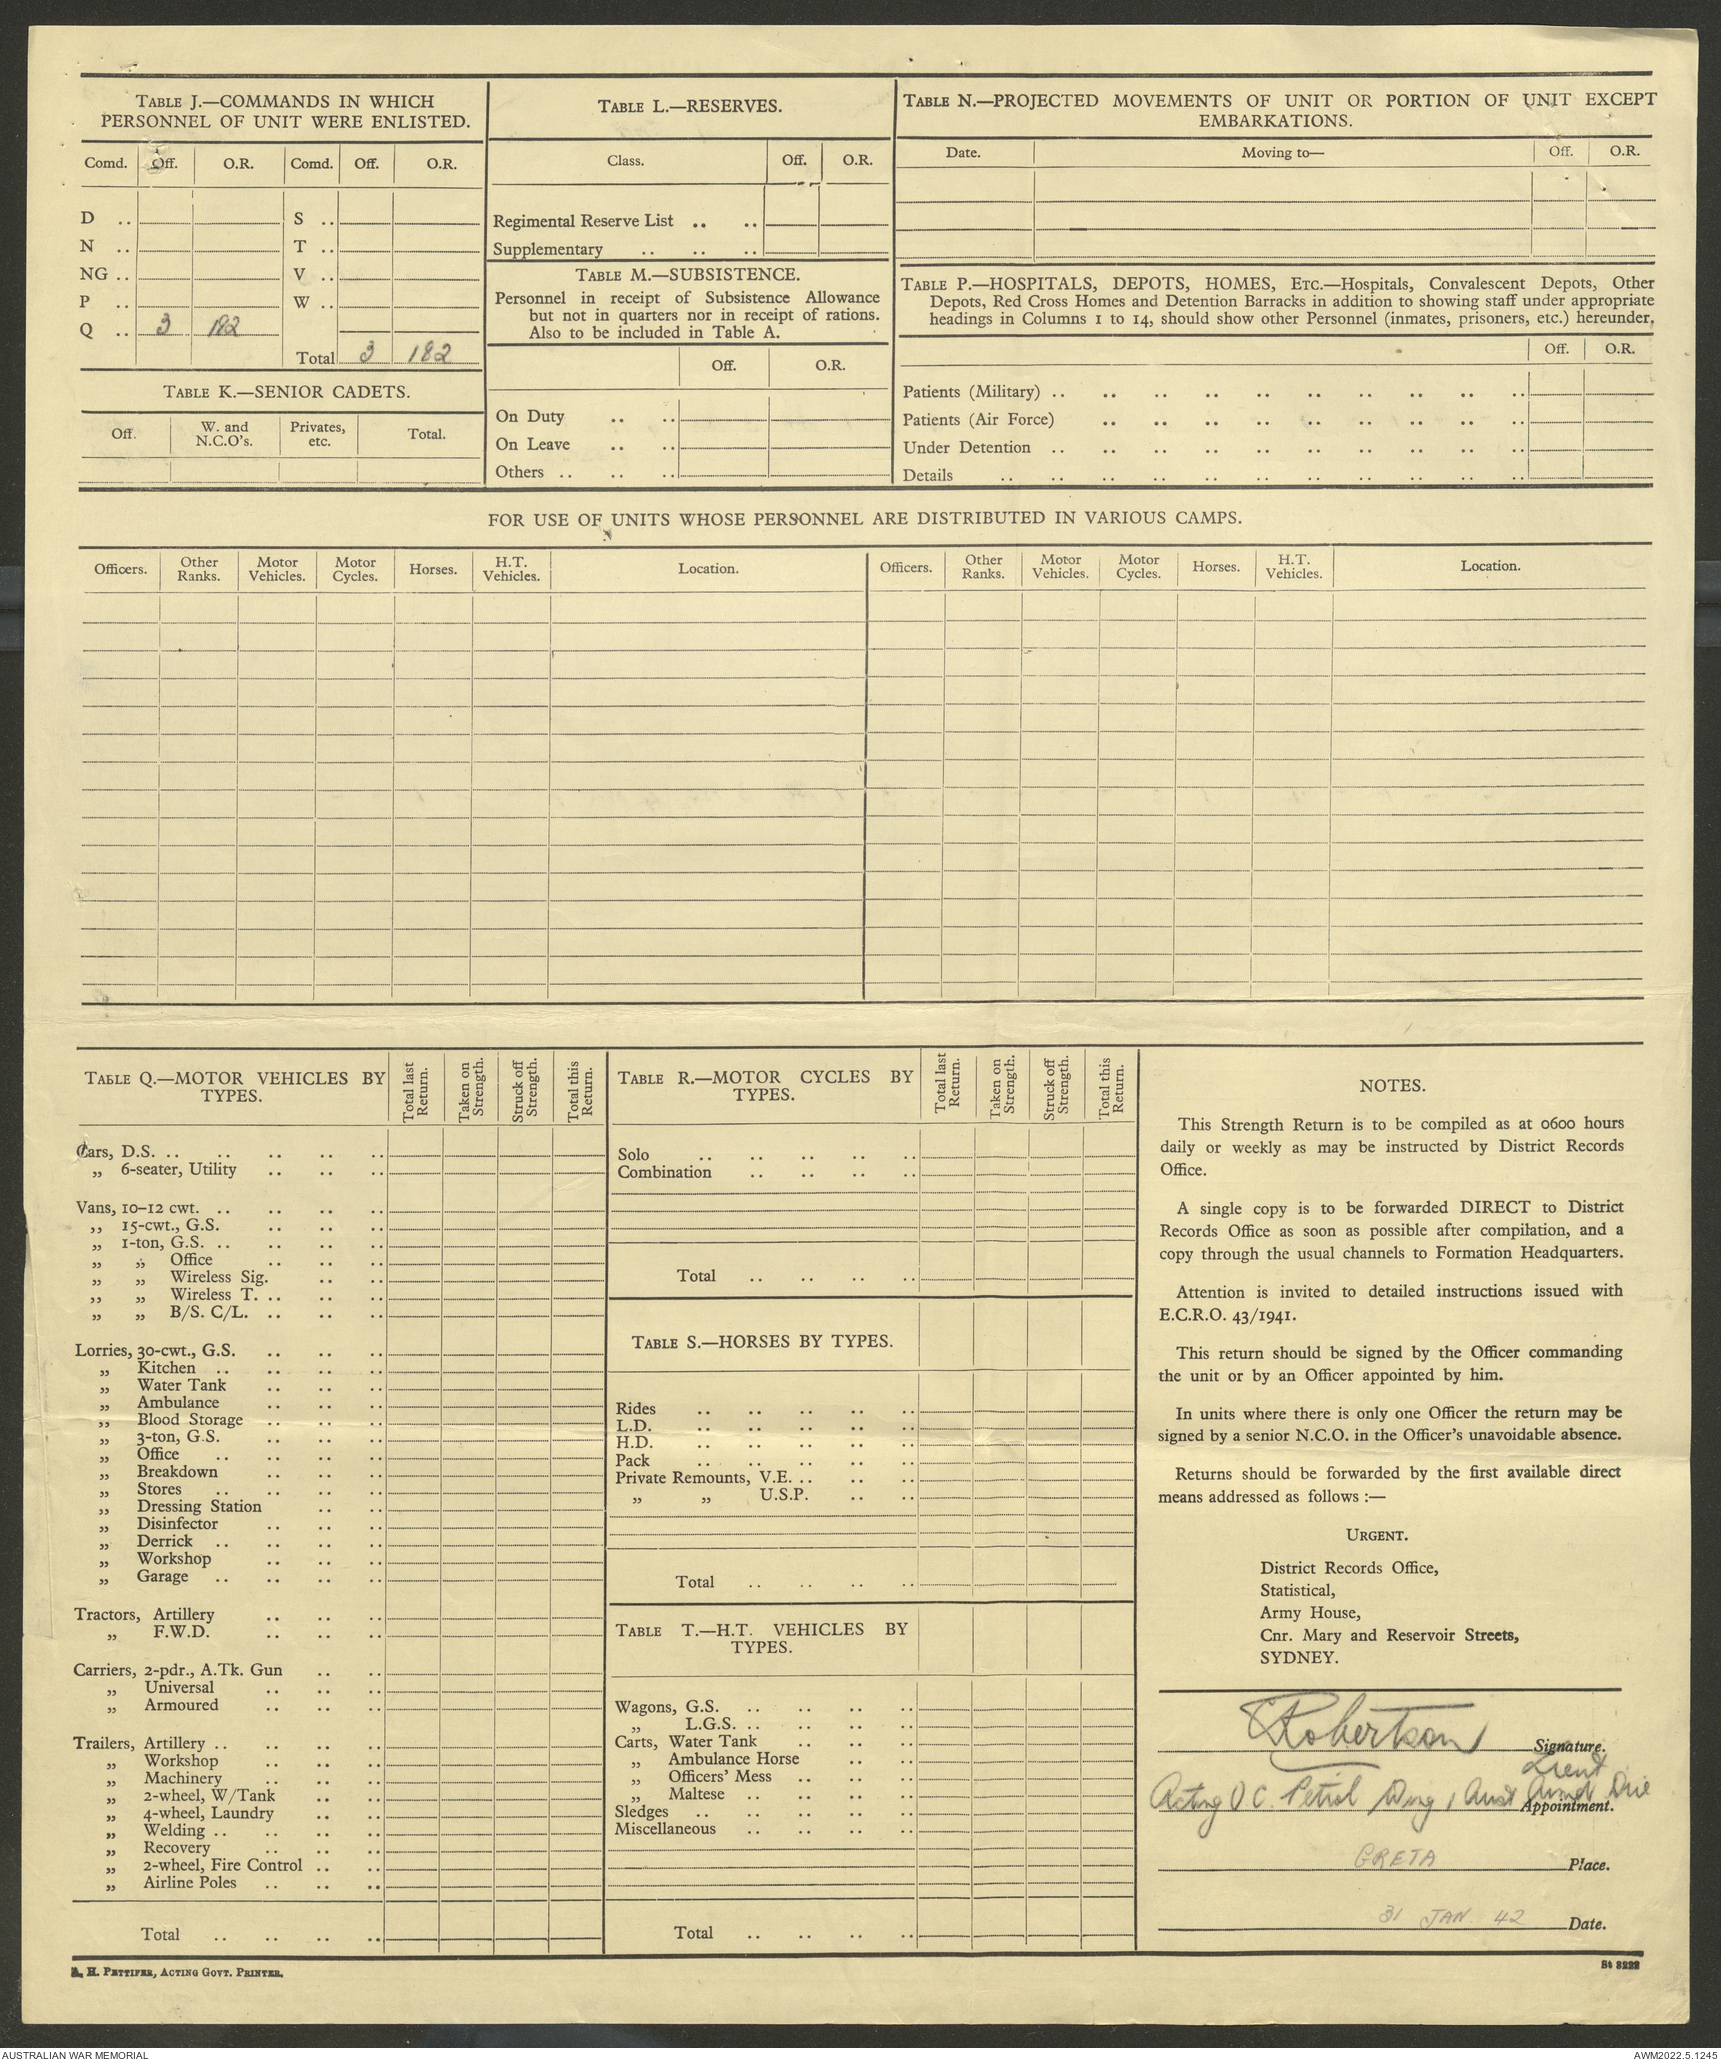 TABLE J.—COMMANDS IN WHICH
PERSONNEL OF UNIT WERE ENLISTED.
Comd. Off. O.R. Comd. Off. O.R.
D .. S ..
N .. T ..
NG .. V ..
P .. W ..
Q .. 3 182
Total 3 182
TABLE K.—SENIOR CADETS.
Off. W. and N.C.O's. Privates, etc. Total.
TABLE L.—RESERVES.
Class. Off. O.R.
Regimental Reserve List .. ..
Supplementary .. .. ..
TABLE M.—SUBSISTENCE.
Personnel in receipt of Subsistence Allowance
but not in quarters nor in receipt of rations.
Also to be included in Table A.
Off. O.R.
On Duty .. ..
On Leave .. ..
Others .. .. ..
TABLE N.—PROJECTED MOVEMENTS OF UNIT OR PORTION OF UNIT EXCEPT
EMBARKATIONS.
Date. Moving to— Off. O.R.
TABLE P.—HOSPITALS, DEPOTS, HOMES, ETC.—Hospitals, Convalescent Depots, Other
Depots, Red Cross Homes and Detention Barracks in addition to showing staff under appropriate
headings in Columns 1 to 14, should show other Personnel (inmates, prisoners, etc.) hereunder.
Off. O.R.
Patients (Military) .. .. .. .. .. .. .. .. .. ..
Patients (Air Force) .. .. .. .. .. .. .. .. ..
Under Detention .. .. .. .. .. .. .. .. .. ..
Details .. .. .. .. .. .. .. .. .. .. ..
FOR USE OF UNITS WHOSE PERSONNEL ARE DISTRIBUTED IN VARIOUS CAMPS.
Officers. Other Ranks. Motor Vehicles. Motor Cycles. Horses. H.T. Vehicles. Location. Officers. Other Ranks. Motor Vehicles. Motor Cycles. Horses. H.T. Vehicles. Location.
TABLE Q.—MOTOR VEHICLES BY
TYPES.
Total last Return. Taken on Strength. Struck off Strength. Total this Return.
Cars, D.S. .. .. .. .. ..
„ 6-seater, Utility .. .. ..
Vans, 10–12 cwt. .. .. .. ..
„ 15-cwt., G.S. .. .. ..
„ 1-ton, G.S. .. .. .. ..
„ „ Office .. .. ..
„ „ Wireless Sig. .. ..
„ „ Wireless T. .. .. ..
„ „ B/S. C/L. .. .. ..
Lorries, 30-cwt., G.S. .. .. ..
„ Kitchen .. .. .. ..
„ Water Tank .. .. ..
„ Ambulance .. .. ..
„ Blood Storage .. .. ..
„ 3-ton, G.S. .. .. ..
„ Office .. .. .. ..
„ Breakdown .. .. ..
„ Stores .. .. .. ..
„ Dressing Station .. ..
„ Disinfector .. .. ..
„ Derrick .. .. .. ..
„ Workshop .. .. ..
„ Garage .. .. .. ..
Tractors, Artillery .. .. ..
„ F.W.D. .. .. ..
Carriers, 2-pdr., A.Tk. Gun .. ..
„ Universal .. .. ..
„ Armoured .. .. ..
Trailers, Artillery .. .. .. ..
„ Workshop .. .. ..
„ Machinery .. .. ..
„ 2-wheel, W/Tank .. ..
„ 4-wheel, Laundry .. ..
„ Welding .. .. .. ..
„ Recovery .. .. ..
„ 2-wheel, Fire Control .. ..
„ Airline Poles .. .. ..
Total .. .. .. ..
TABLE R.—MOTOR CYCLES BY
TYPES.
Total last Return. Taken on Strength. Struck off Strength. Total this Return.
Solo .. .. .. .. ..
Combination .. .. .. ..
Total .. .. .. ..
TABLE S.—HORSES BY TYPES.
Rides .. .. .. .. ..
L.D. .. .. .. .. ..
H.D. .. .. .. .. ..
Pack .. .. .. .. ..
Private Remounts, V.E. .. .. ..
„ „ U.S.P. .. ..
Total .. .. .. ..
TABLE T.—H.T. VEHICLES BY
TYPES.
Wagons, G.S. .. .. .. ..
„ L.G.S. .. .. .. ..
Carts, Water Tank .. .. ..
„ Ambulance Horse .. ..
„ Officers' Mess .. .. ..
„ Maltese .. .. .. ..
Sledges .. .. .. .. ..
Miscellaneous .. .. .. ..
Total .. .. .. ..
NOTES.
This Strength Return is to be compiled as at 0600 hours
daily or weekly as may be instructed by District Records
Office.
A single copy is to be forwarded DIRECT to District
Records Office as soon as possible after compilation, and a
copy through the usual channels to Formation Headquarters.
Attention is invited to detailed instructions issued with
E.C.R.O. 43/1941.
This return should be signed by the Officer commanding
the unit or by an Officer appointed by him.
In units where there is only one Officer the return may be
signed by a senior N.C.O. in the Officer's unavoidable absence.
Returns should be forwarded by the first available direct
means addressed as follows :—
URGENT.
District Records Office,
Statistical,
Army House,
Cnr. Mary and Reservoir Streets,
SYDNEY.
Robertson Signature.
Lieut
Acting O C. Petrol Wing 1 Aust Armd Div Appointment.
GRETA Place.
31 JAN 42 Date.
A. H. PETTIFER, ACTING GOVT. PRINTER.
St 3222
AUSTRALIAN WAR MEMORIAL
AWM2022.5.1245